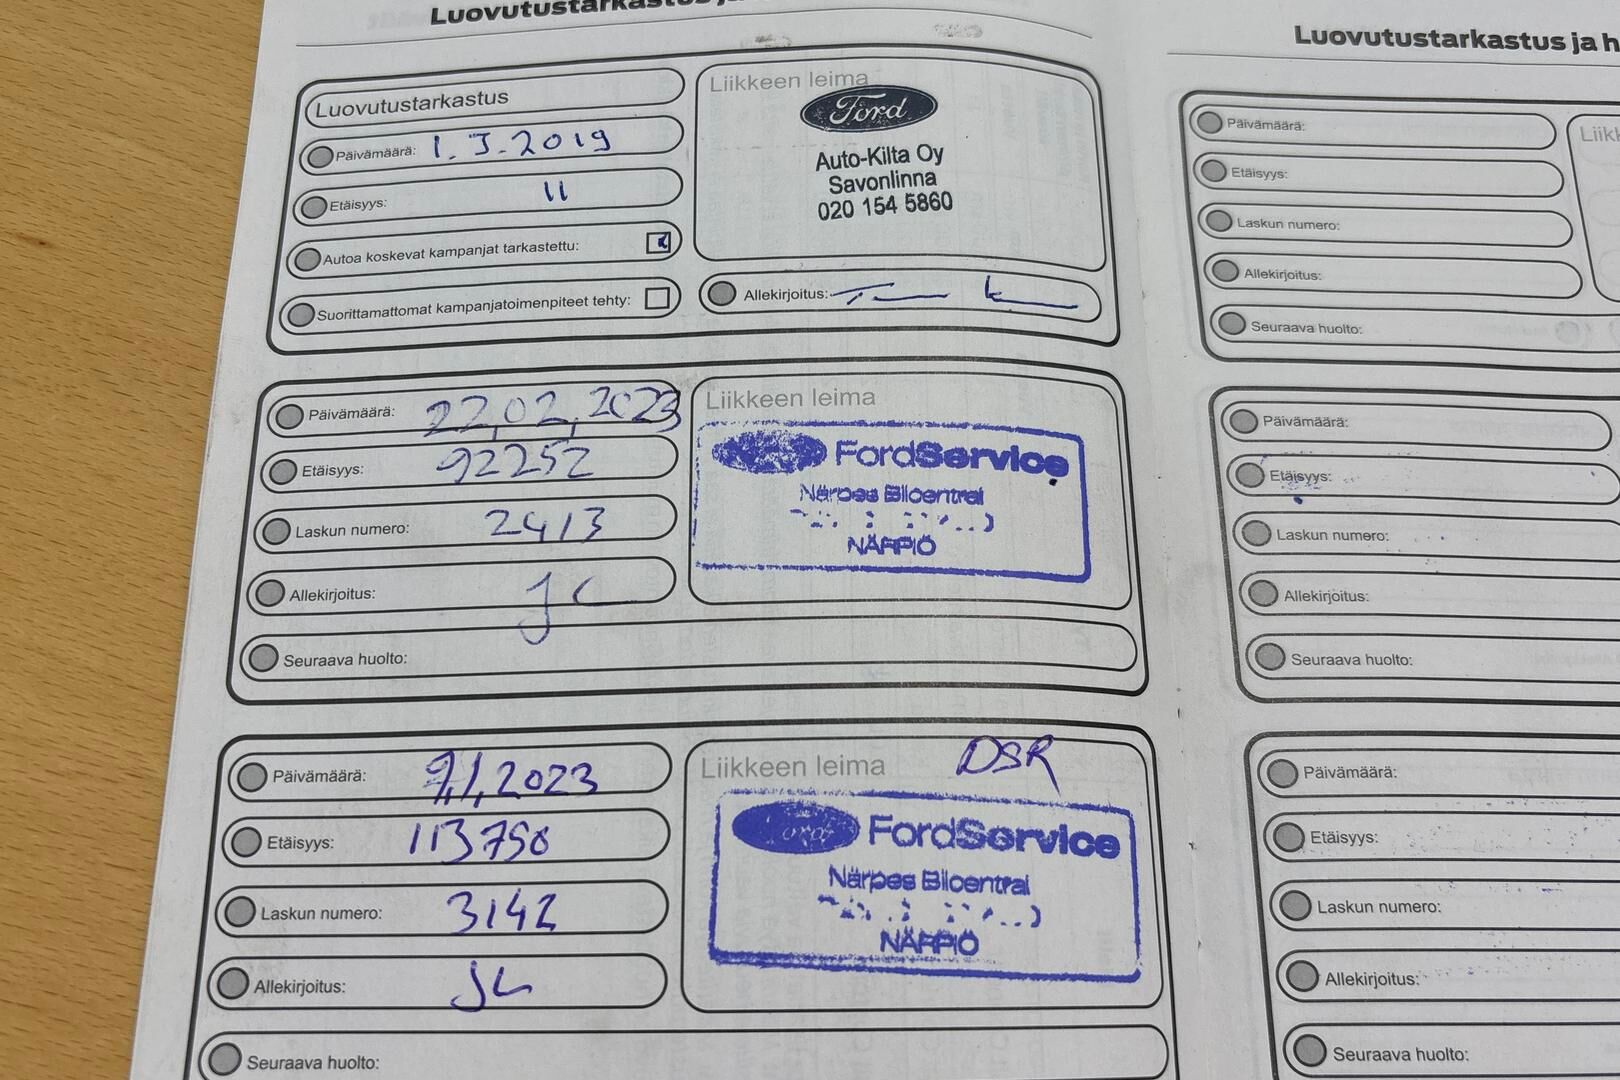 Luovutustarkastus ja
Luovutustarkastus
Päivämäärä: 1.3.2019
Etäisyys: 11
Autoa koskevat kampanjat tarkastettu:
Suorittamattomat kampanjatoimenpiteet tehty:
Liikkeen leima
Ford
Auto-Kilta Oy
Savonlinna
020 154 5860
Allekirjoitus:
Päivämäärä: 22,02,2023
Etäisyys: 92252
Laskun numero: 2413
Allekirjoitus:
Seuraava huolto:
Liikkeen leima
FordService
Närpes Bilcentral
NÄRPIÖ
Päivämäärä:
Etäisyys: 113750
Laskun numero: 3142
Allekirjoitus:
Seuraava huolto:
Liikkeen leima DSR
Ford
FordService
Närpes Bilcentral
NÄRPIÖ
Luovutustarkastus ja h
Päivämäärä:
Etäisyys:
Laskun numero:
Allekirjoitus:
Seuraava huolto:
Päivämäärä:
Etäisyys:
Laskun numero:
Allekirjoitus:
Seuraava huolto:
Päivämäärä:
Etäisyys:
Laskun numero:
Allekirjoitus:
Seuraava huolto: